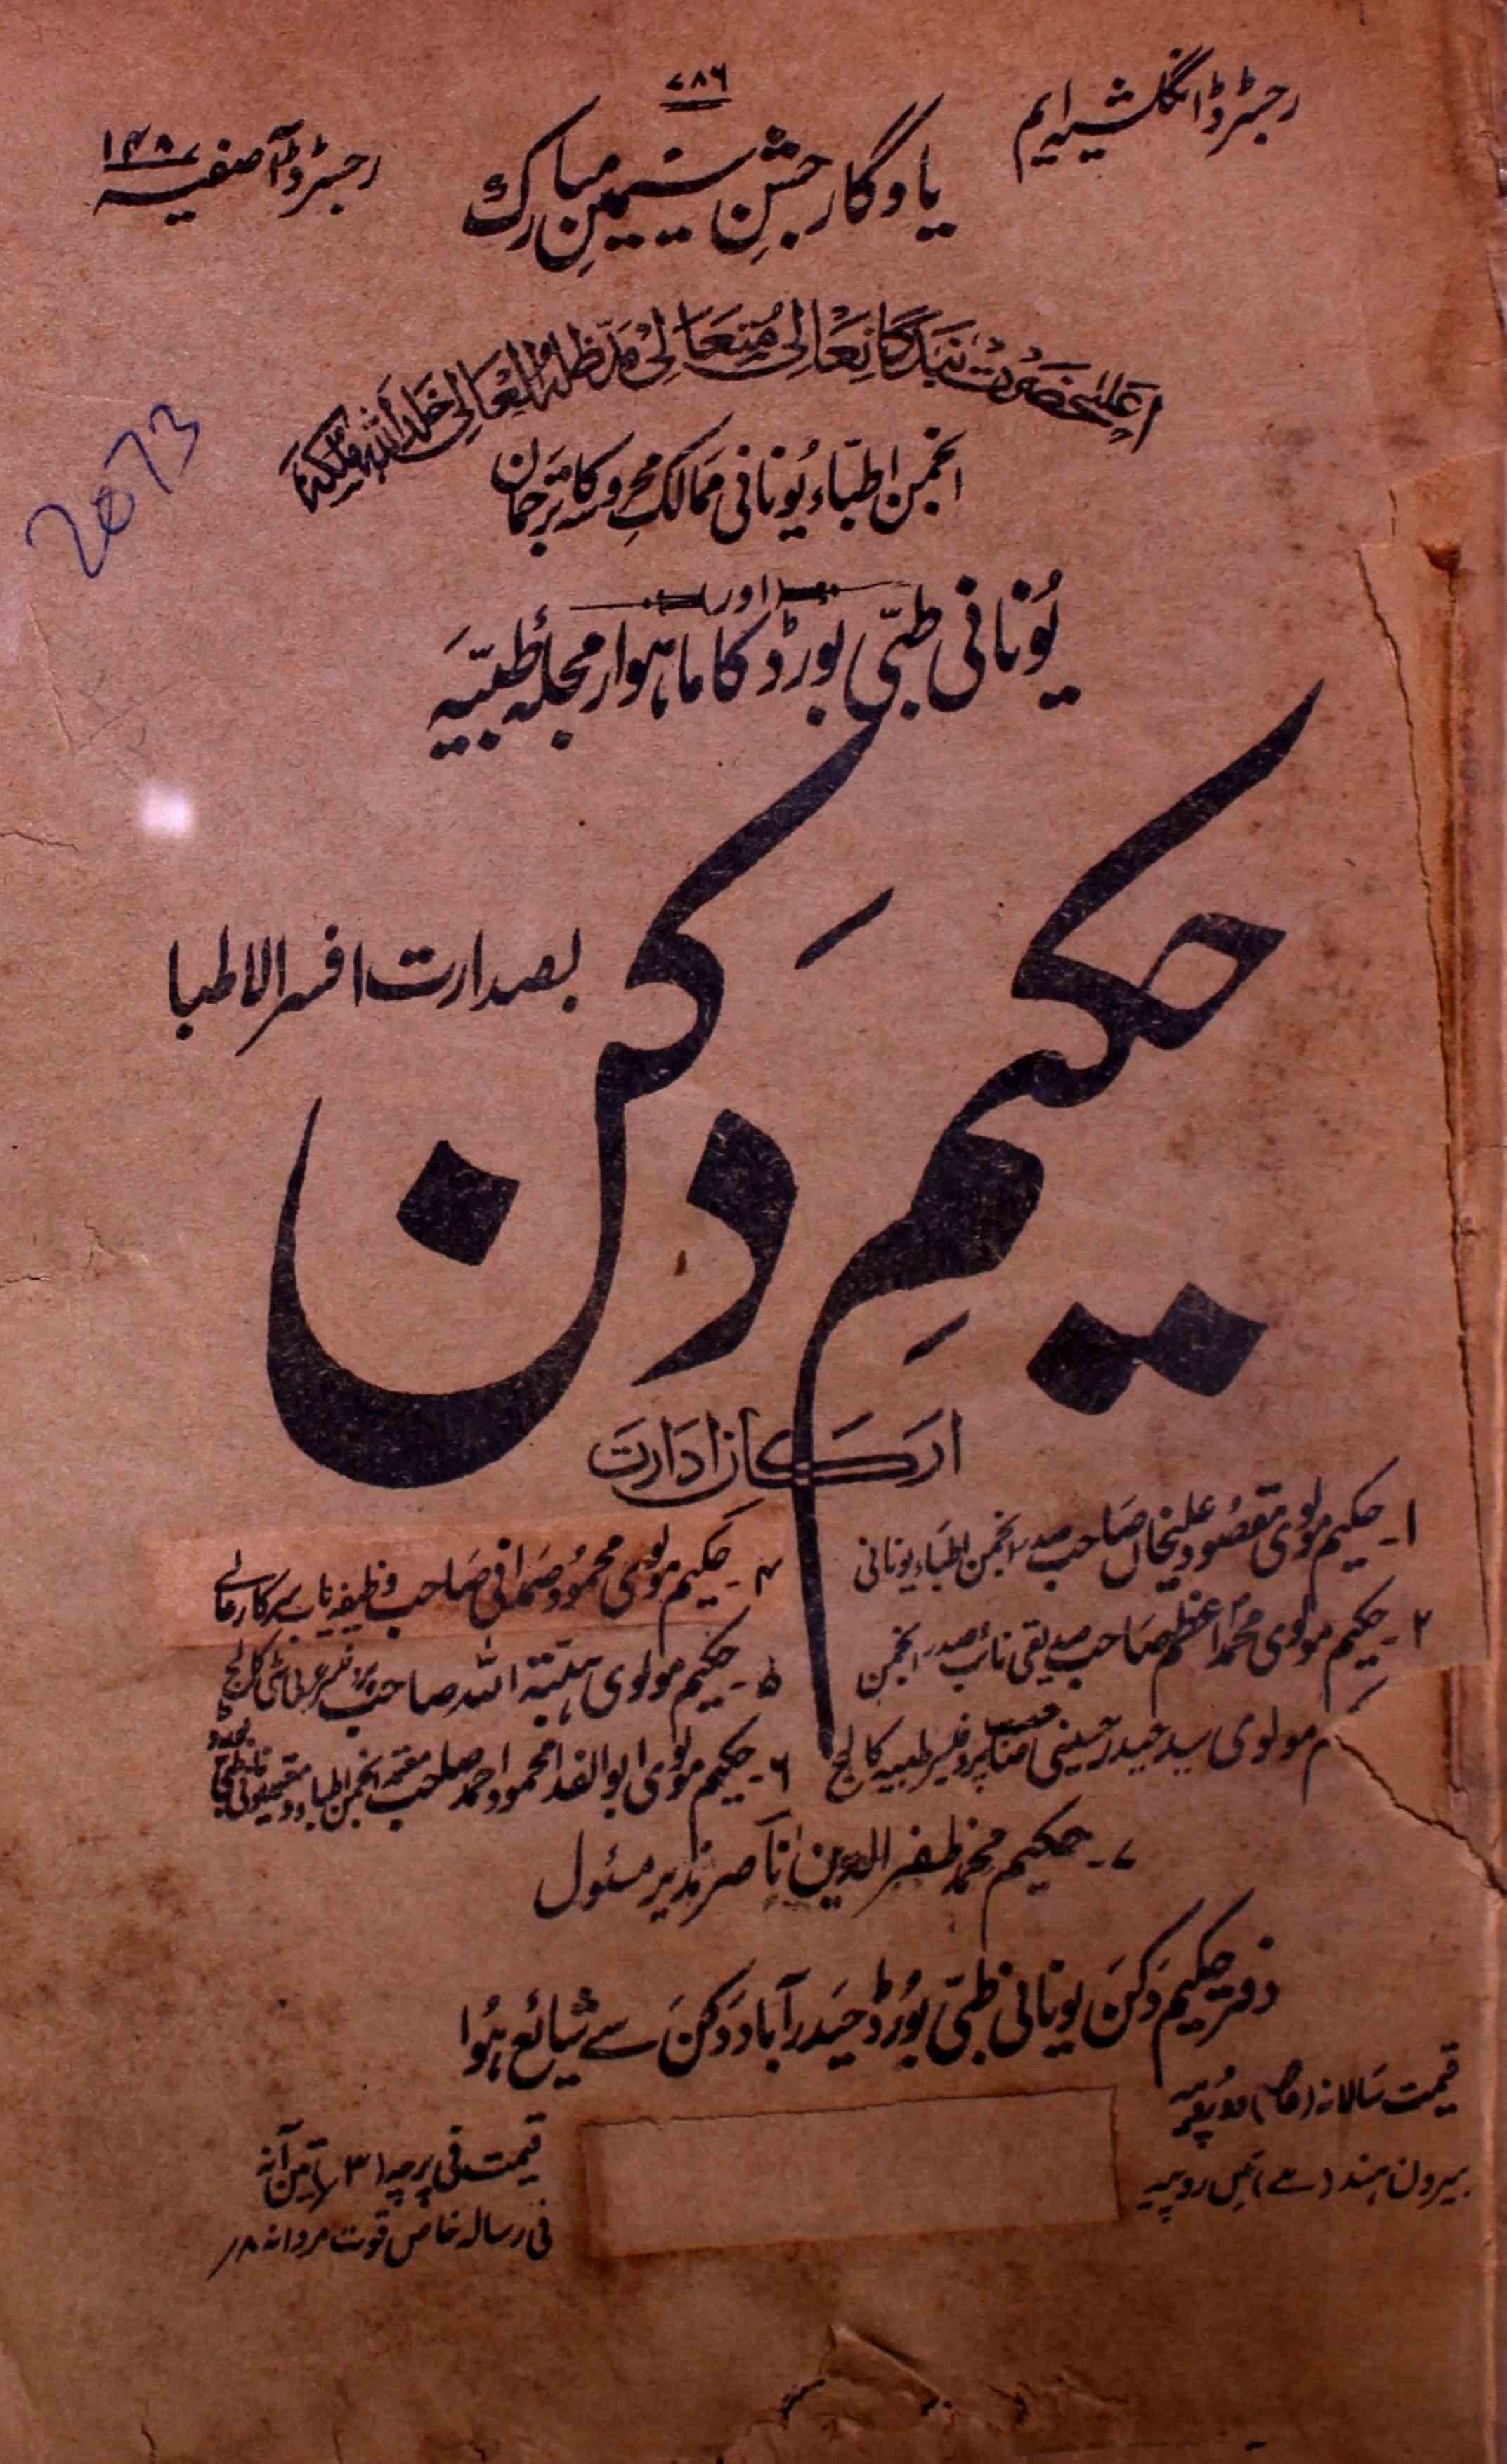 ۷۸۶
رجسٹرڈ انگلشیہ ایم
یادگار جشنِ سیمینِ مبارک
رجسٹرڈ آصفیہ ۱۴۸
اعلیٰحضرت بندگانعالی متعالی مدظلہ العالی خلد اللہ ملکہ
2073
انجمن اطبّاء یُونانی ممالک محروسہ کا ترجمان
اور
یُونانی طبّی بورڈ کا ماہوار مجلہٴ طبّیہ
حکیمِ دَکن
بصدارت افسر الاطبا
ارکان ادارت
۱۔ حکیم مولوی مقصود علیخاں صاحب صدر انجمن اطباء یونانی
۲۔ حکیم مولوی محمد اعظم صاحب صدیقی نائب صدر انجمن
م مولوی سید حیدر حسینی صاحب پروفیسر طبیہ کالج
۴۔ حکیم مولوی محمود صمدانی صاحب وظیفہ یاب سرکار عالی
۵۔ حکیم مولوی ہبتہ اللہ صاحب پروفیسر کالج
۶۔ حکیم مولوی ابوالفدا محمود احمد صاحب معتمد انجمن اطباء و
۷۔ حکیم محمد ظفر الدین ناصر مدیر مسئول
دفتر حکیم دَکن یونانی طبّی بورڈ حیدرآباد دَکن سے شائع ہُوا
قیمت سالانہ دو روپیہ
بیرون ہند (ے) تین روپیہ
قیمت فی پرچہ (۳؍) تین آنہ
فی رسالہ خاص قوت مردانہ ۸؍